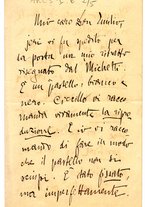 Mio caro Don Giulio,
ieri vi fu spedito per
la posta un mio ritratto
disegnato dal Michetti.
È un pastello; bianco e
nero. Cecello vi racco
manda vivamente la ripro
duzione. E io vi racco
mando di fare in modo
che il pastello non si
rompi. È stato fissato,
ma imperfettamente